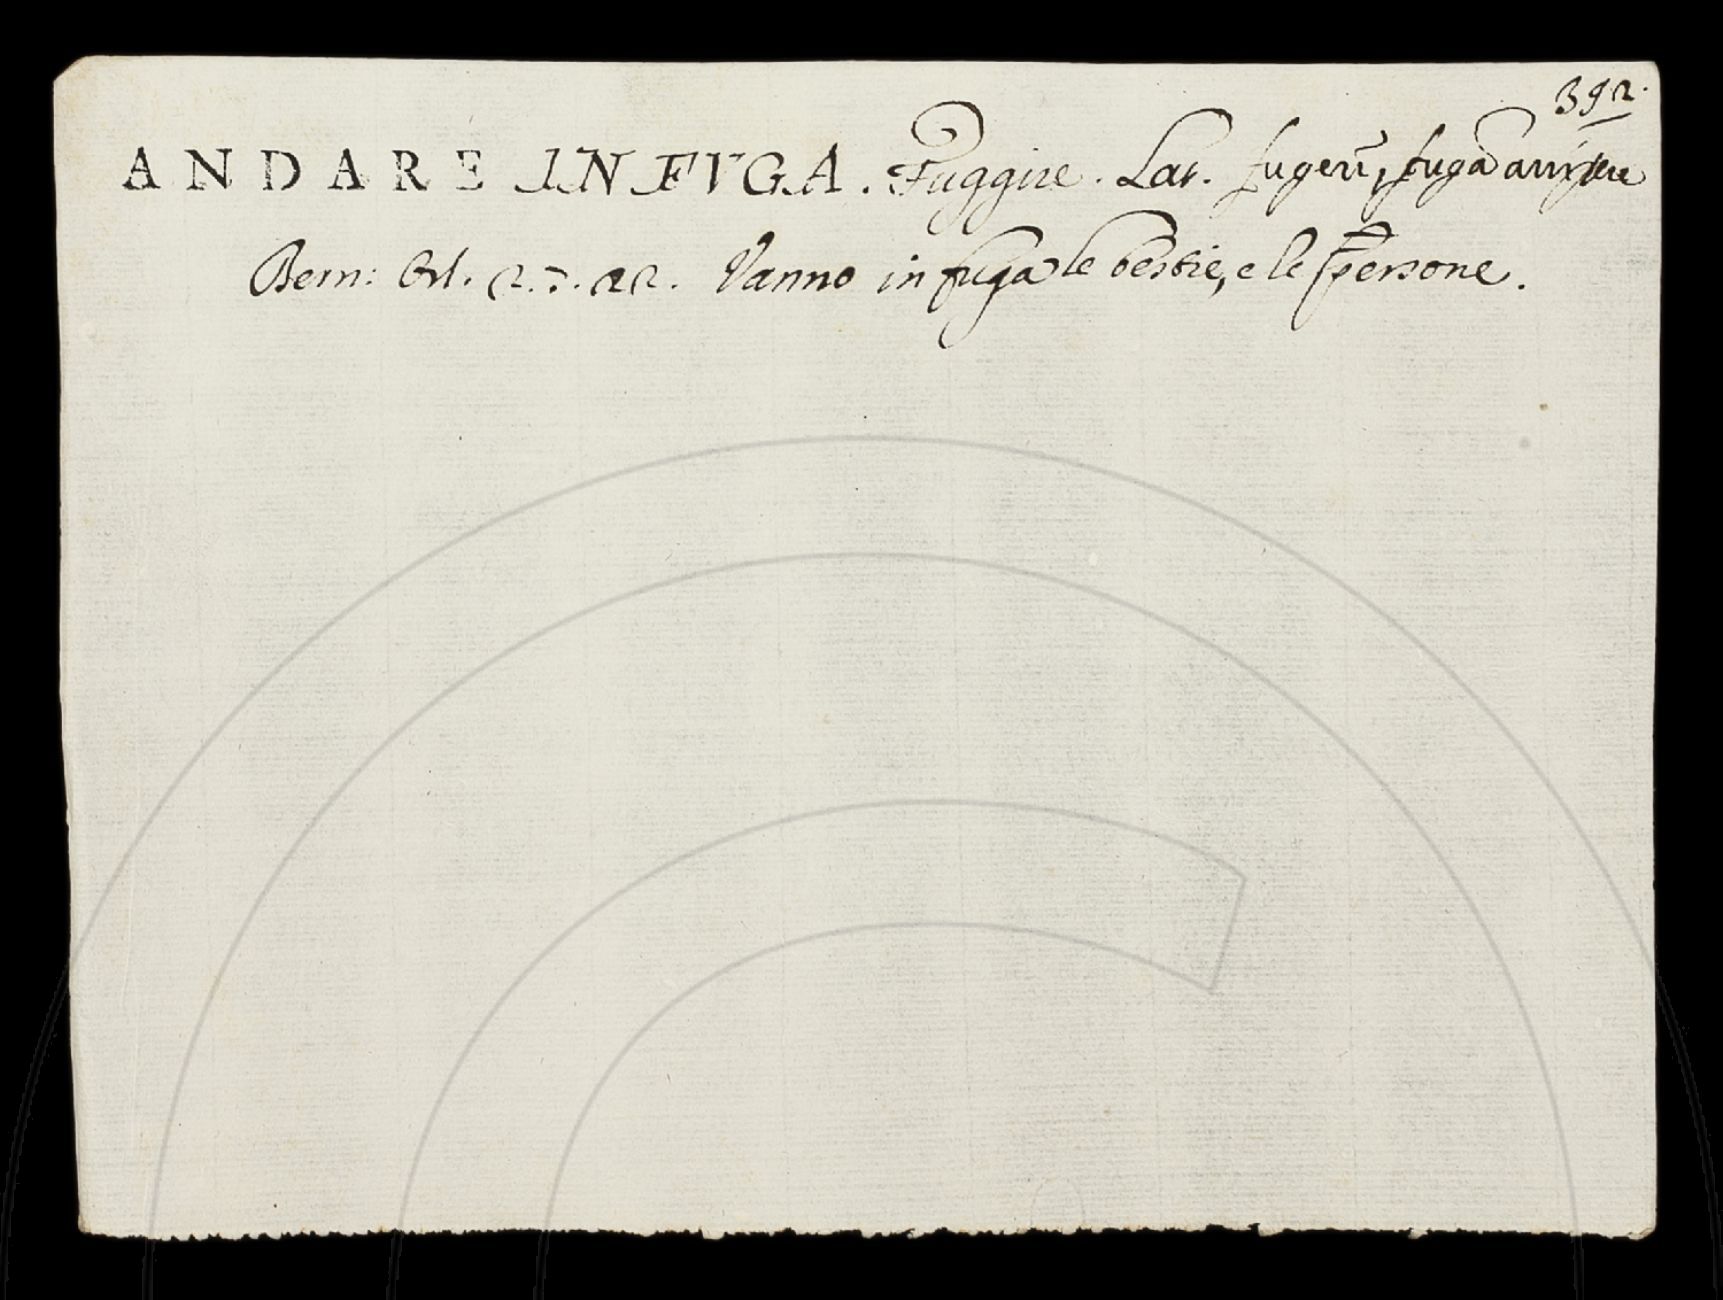 392.
ANDARE IN FVGA. Fuggire. Lat. fugere, fugā arripere
Bern: Orl. 2.5.22. Vanno in fuga le bestie, e le persone.